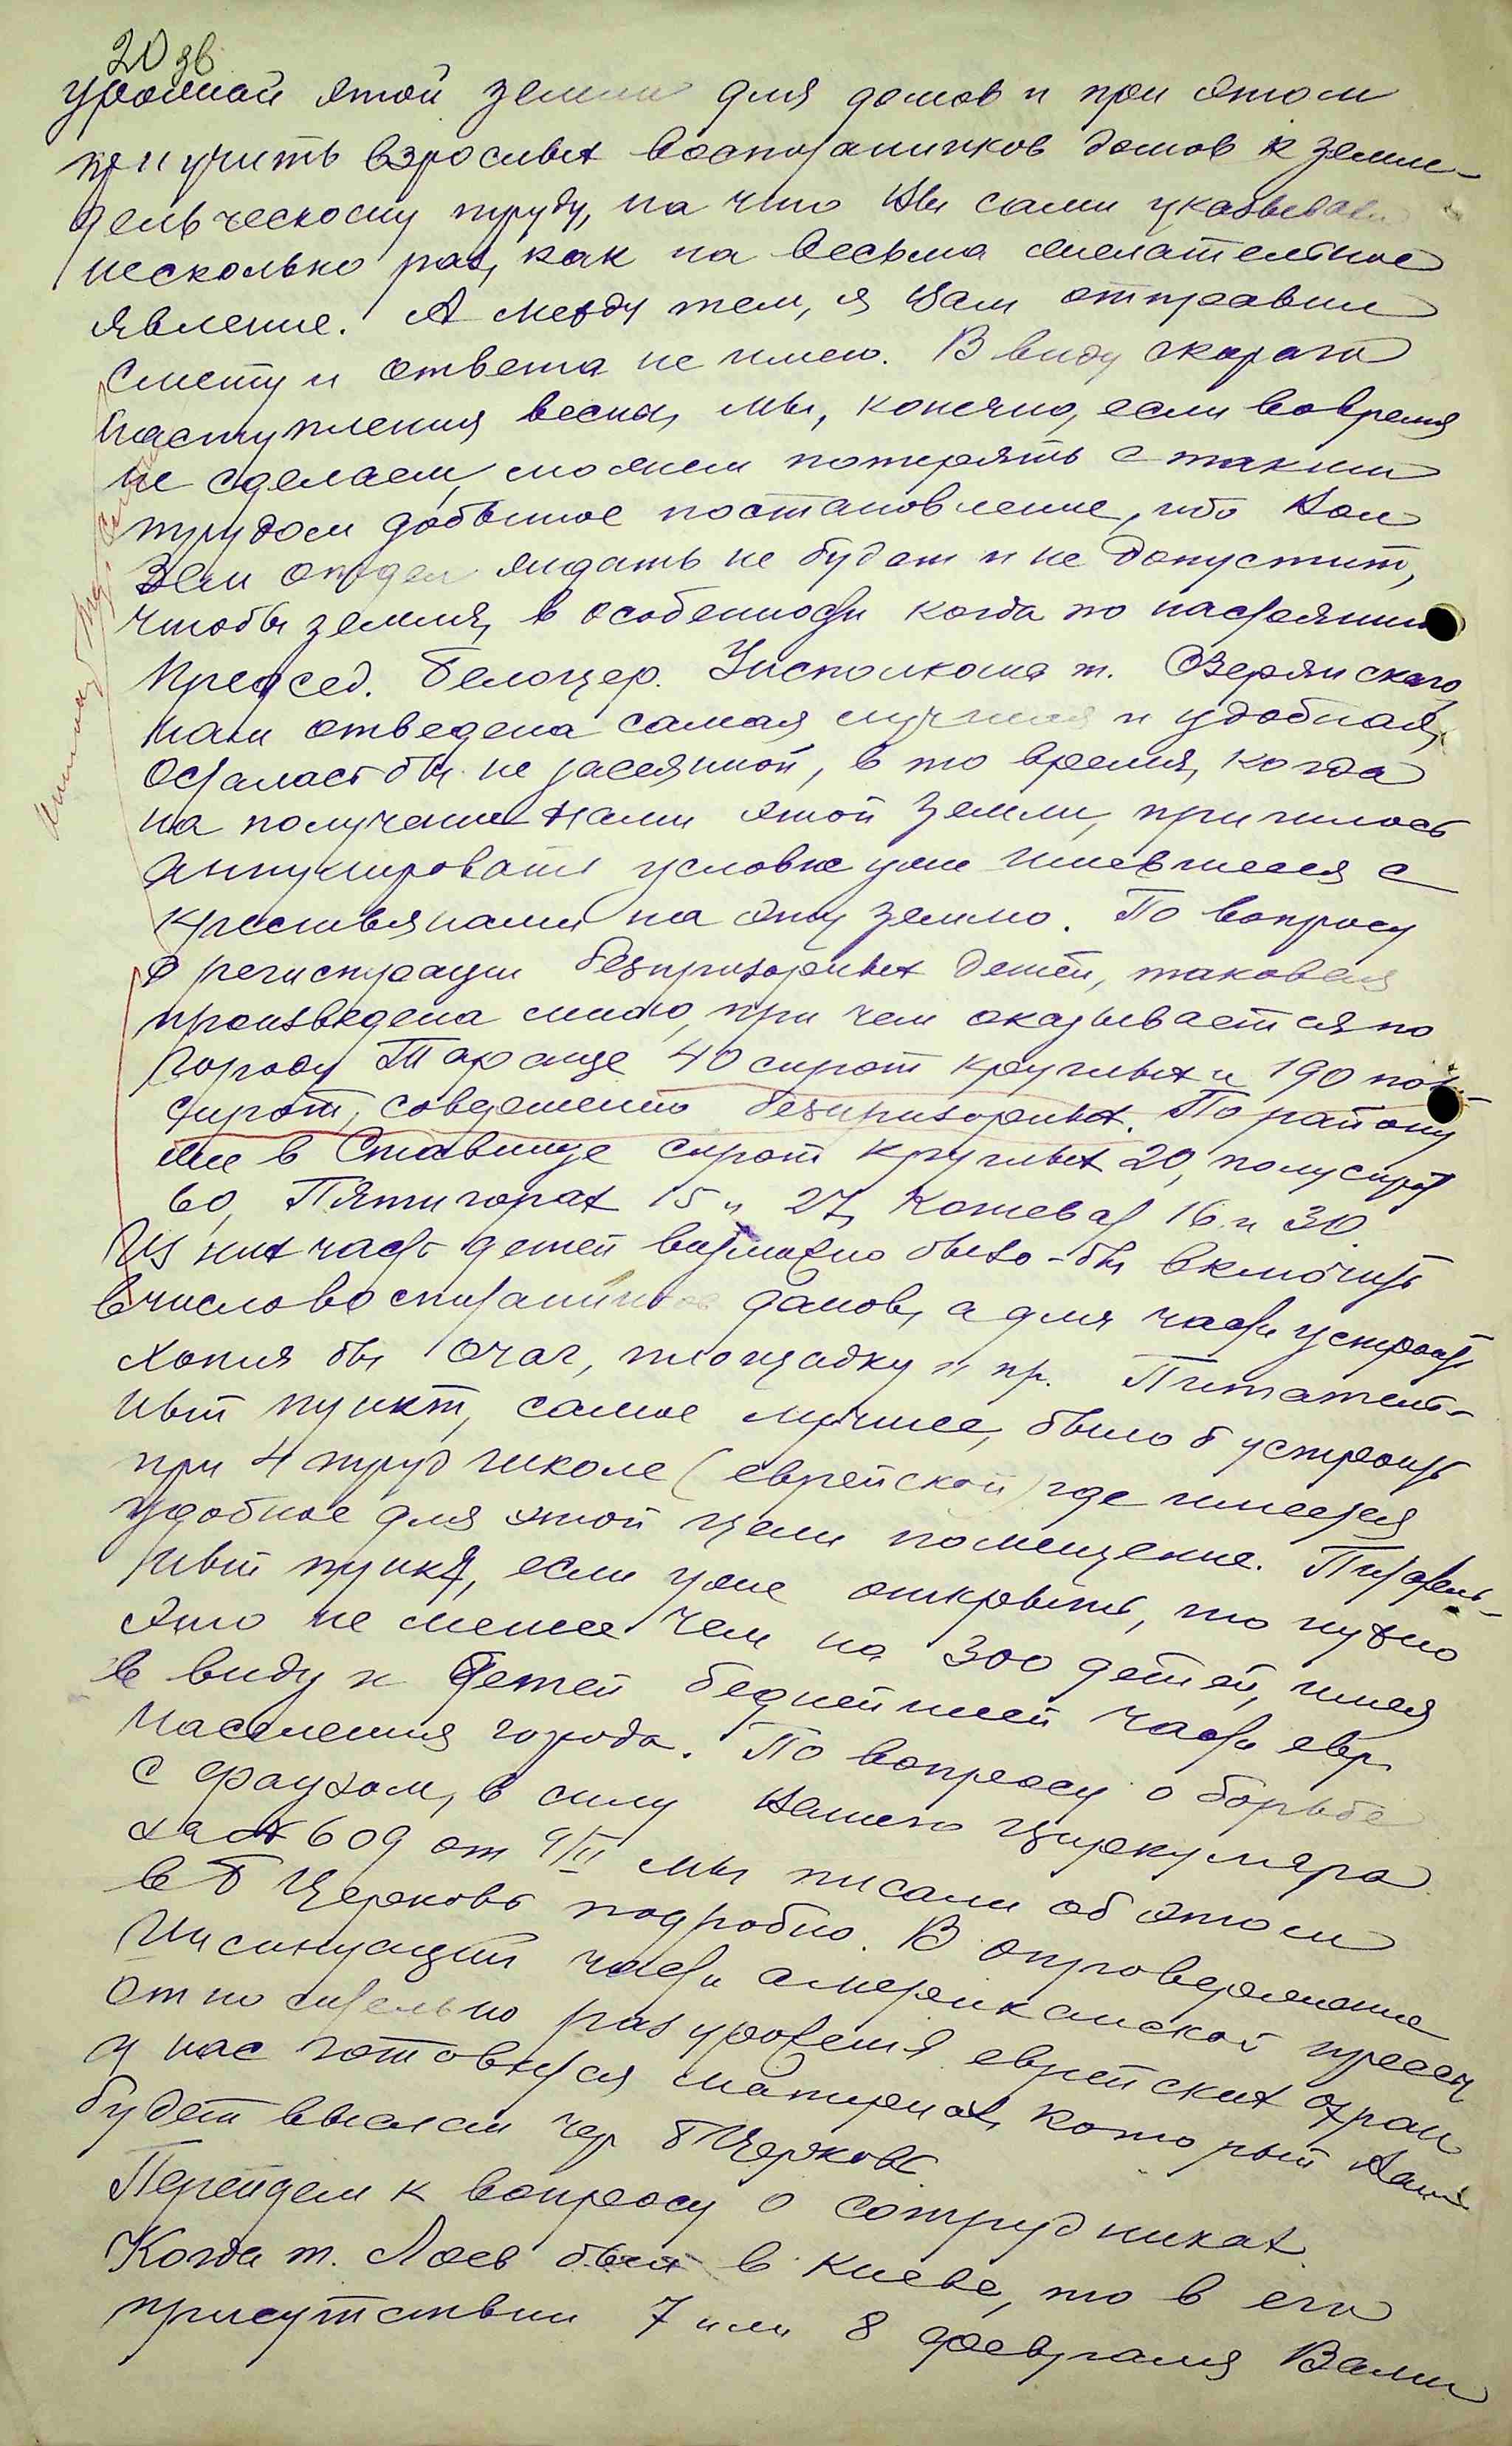 20 зв
урожай этой земли для домов и при этом
приучить взрослых воспитанников домов к земле-
дельческому труду, на что Вы сами указывали
несколько раз, как на весьма желательное
явление. А между тем, я Вам отправил
смету и ответа не имею. В виду скораго
наступления весны, мы, конечно, если вовремя
не сделаем, можем потерять с таким
трудом добытое постановление, ибо
Зем отдел ждать не будет и не допустит,
чтобы земля, в особенности когда по настоянию
Председ. Белоцер. Исполкома т. Озерянскаго,
нам отведена самая лучшая и удобная,
осталась бы не засеянной, в то время, когда
на получение нами этой земли, пришлось
аннулировать условие уже имевшееся с
крестьянами на эту землю. По вопросу
о регистрации безпризорных детей, таковая
произведена мною, при чем оказывается по
городу Тараще 40 сирот круглых и 190 пол-
сирот, совершенно безпризорных. По району
же в Ставище сирот круглых 20, полусирот
60, Пятигорах 15 и 27, Кошеват 16 и 30.
Из них часть детей возможно было-бы включить
в число воспитанников домов, а для части устроить
хотя бы очаг, площадку и пр. Питатель-
ный пункт, самое лучшее, было б устроить
при 4 труд школе (еврейской) где имеется
удобное для этой цели помещение. Питатель-
ный пункт, если уже открыть, то нужно
это не менее чем на 300 детей, имея
в виду и детей беднейшей части евр.
населения города. По вопросу о борьбе
с фаузом, в силу Вашего циркуляра
за № 609 от 9/II мы писали об этом
в Б Церковь подробно. В опровержение
инсинуаций части американской прессы
относительно разрушения еврейских
у нас готовится материал, который Вам
будет выслан чер Б Церковь
Перейдем к вопросу о сотрудниках.
Когда т. Лоев был в Киеве, то в его
присутствии 7 или 8 февраля Вами